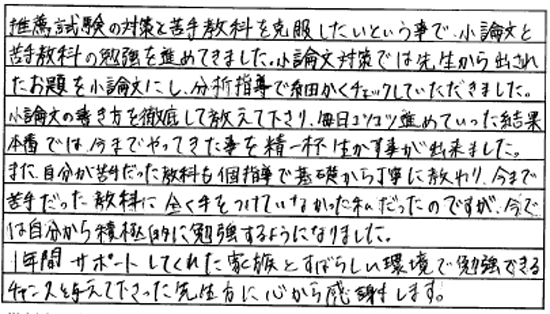 推薦試験の対策と苦手教科を克服したいという事で、小論文と
苦手教科の勉強を進めてきました。小論文対策では先生から出され
たお題を小論文にし、分析指導で細かくチェックしていただきました。
小論文の書き方を徹底して教えて下さり、毎日コツコツ進めていった結果
本番では、今までやってきた事を精一杯生かす事が出来ました。
また、自分が苦手だった教科も個指導で基礎から丁寧に教わり、今まで
苦手だった教科に全く手をつけていなかった私だったのですが、今で
は自分から積極的に勉強するようになりました。
1年間サポートしてくれた家族とすばらしい環境で勉強できる
チャンスを与えて下さった先生方に心から感謝します。